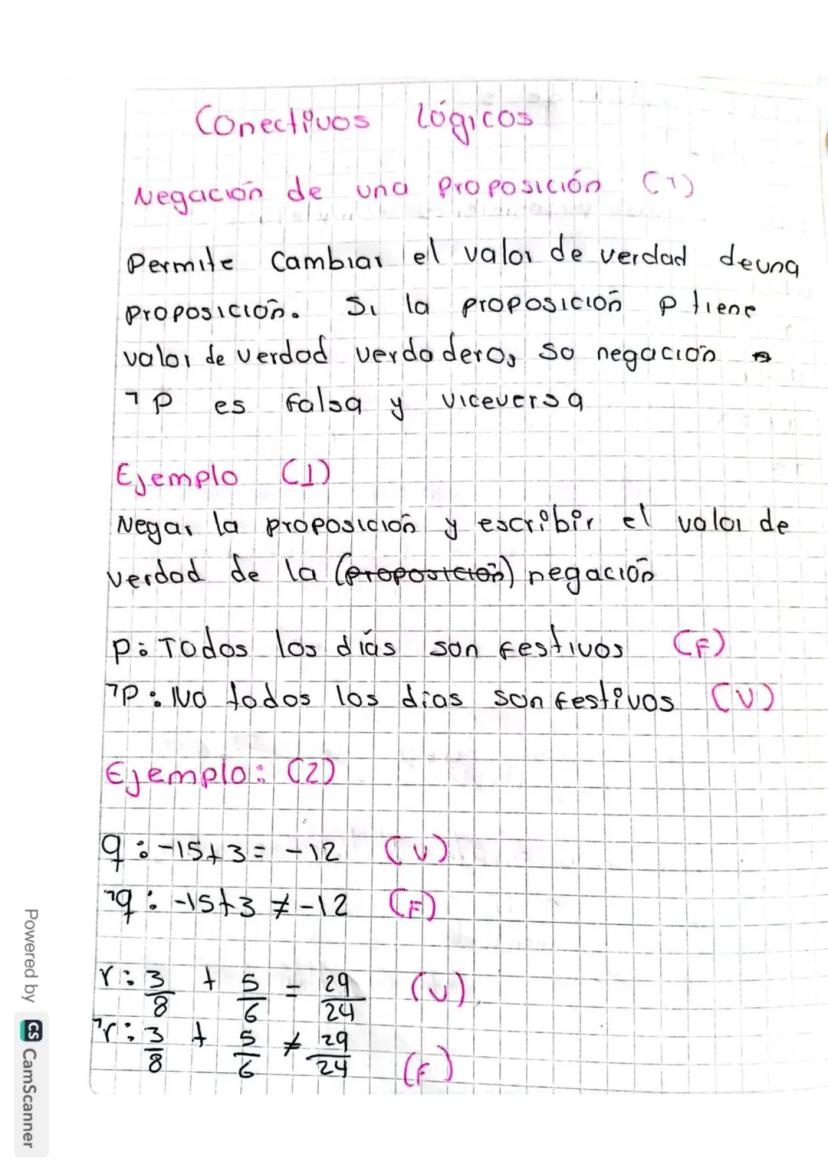 Conectivos lógicos
Negación de una proposición (¬)
Permite cambiar el valor de verdad de una
proposición. Si la proposición p tiene
valor de verdad verdadero, so negación
¬p es falsa y viceversa
Ejemplo (1)
Negar la proposición y escribir el valor de
verdad de la (proposición) negación
p: Todos los días son festivos (F)
¬p: No todos los dias son festivos (V)
Ejemplo: (2)
q: -15+3 = -12 (V)
¬q: -15+3 ≠ -12 (F)
r: 3/8 + 5/6 = 29/24 (V)
¬r: 3/8 + 5/6 ≠ 29/24 (F)
Powered by CS CamScanner